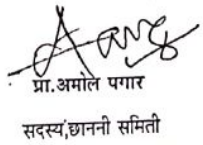 प्रा.अमोल पगार
सदस्य,छाननी समिती